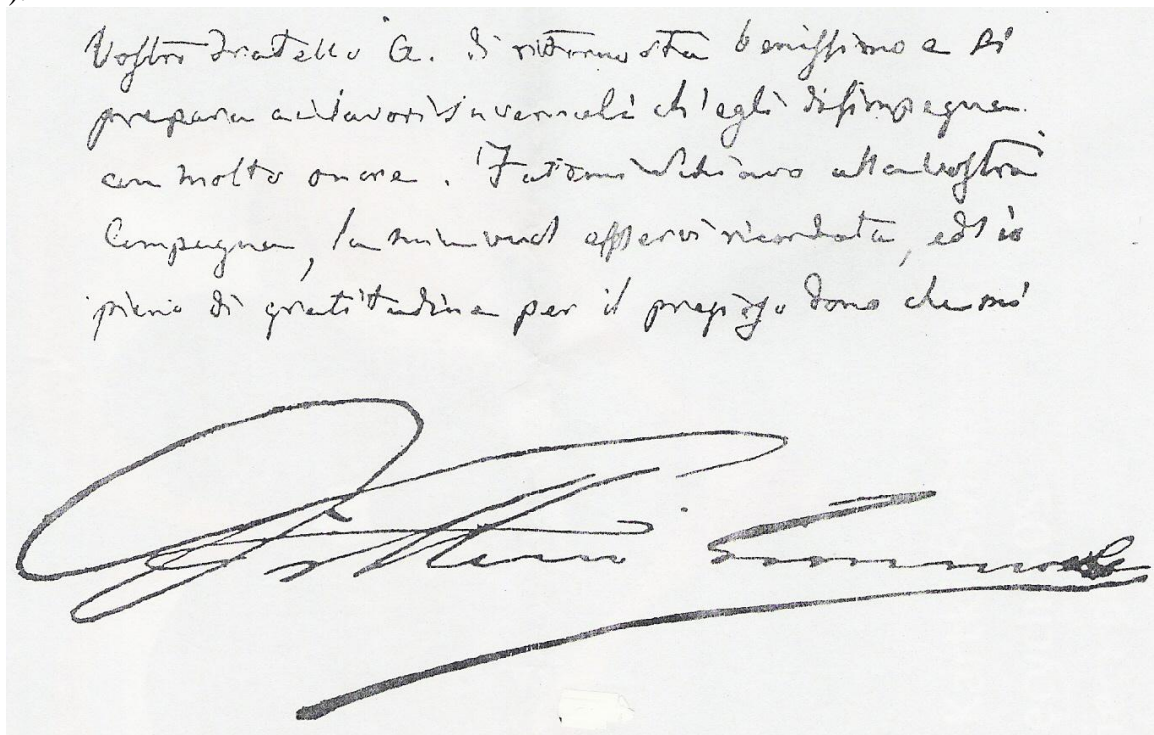 Vostro Fratello G. di ritorno sta benissimo e si
prepara ai lavori invernali ch'egli disimpegna
con molto onore. Fatemi schiavo alla vostra
Compagna, la mia vuol esservi ricordata, ed io
pieno di gratitudine per il prezioso dono che mi